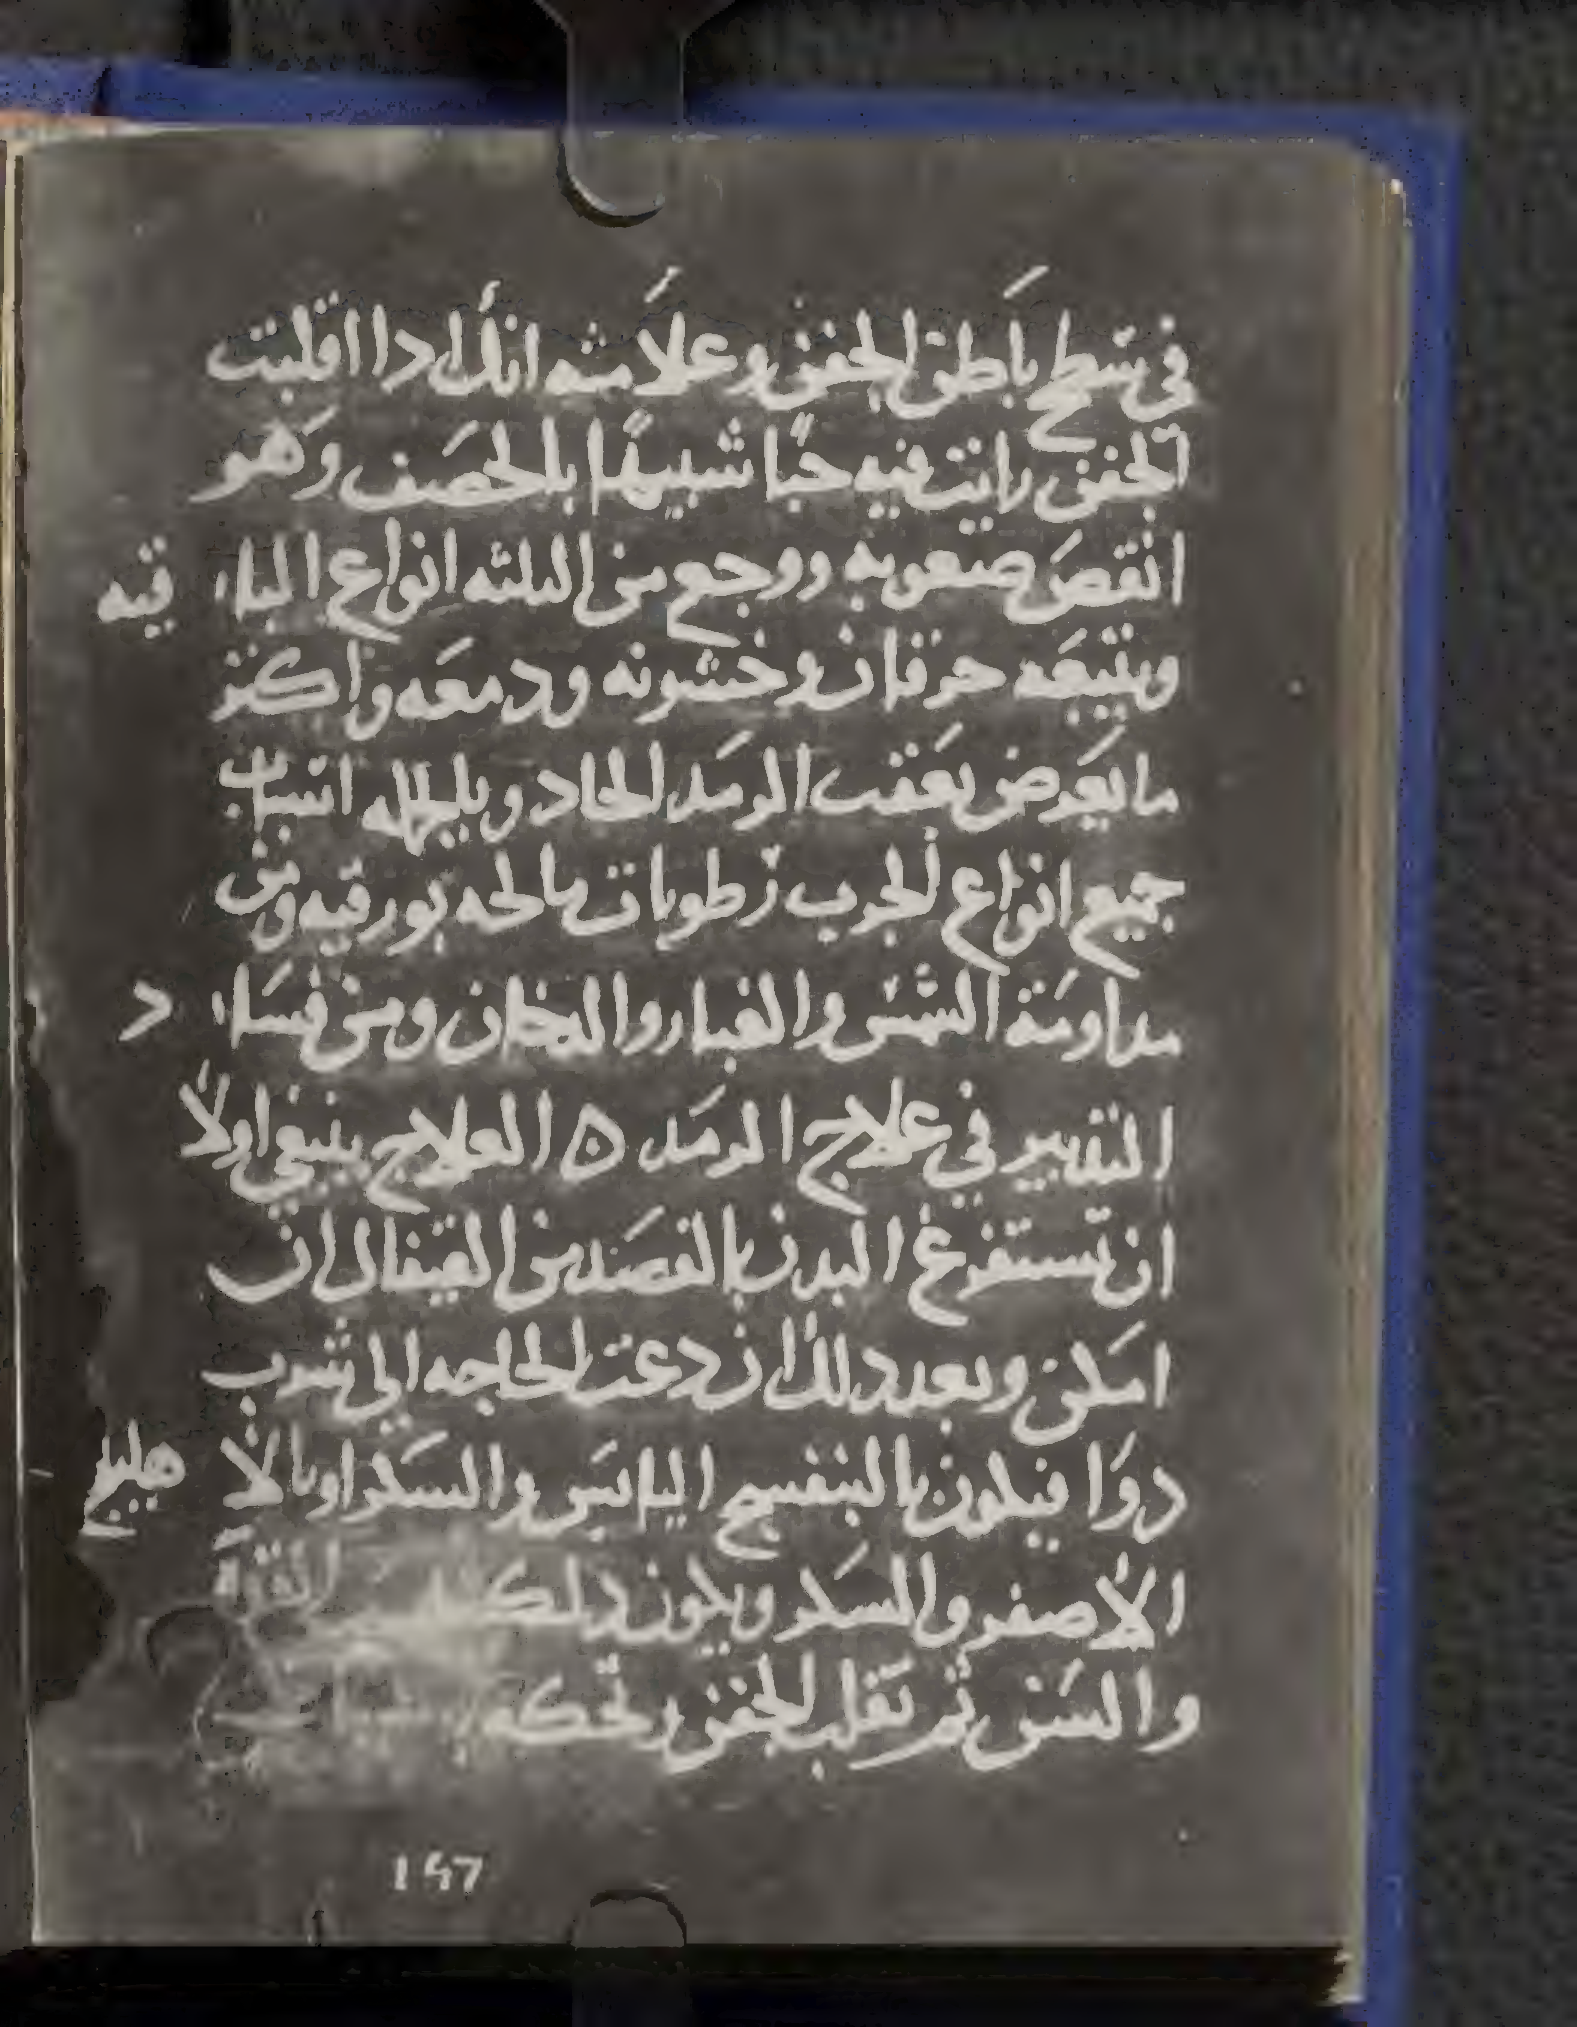 في سَطح بَاطن الجفن وعلَامته انك ادا اقلبت
الجفن رايت فيه حبًا شبيهًا بالحصَف وَهو
انقصَ صعوبه ووجع من الثلثه انواع الباقيه
ويتبعَه حرقان وخشونه ودمعَه واكثر
ما يعَرض بعَقب الرمَد الحاد وبالجمله اسباب
جميع انواع الجرب رطوبات مالحه بورقيه ومن
مداومَة الشمس والغبار والدخان ومن فسَاد
التدبير في علاج الرمَد ه العلاج ينبغي اولا
ان تستفرغ البدن بالفصَد من القيفال ان
امَكن وبعد دلك ان دعت الحاجه الى شرب
دوَا فيكون بالبنفسج اليابسَ والسَكر او بالاهليلج
الاصفر والسَكر ويكون دلك القوة
والسَن ثم تقلب الجفن وتحكه
147